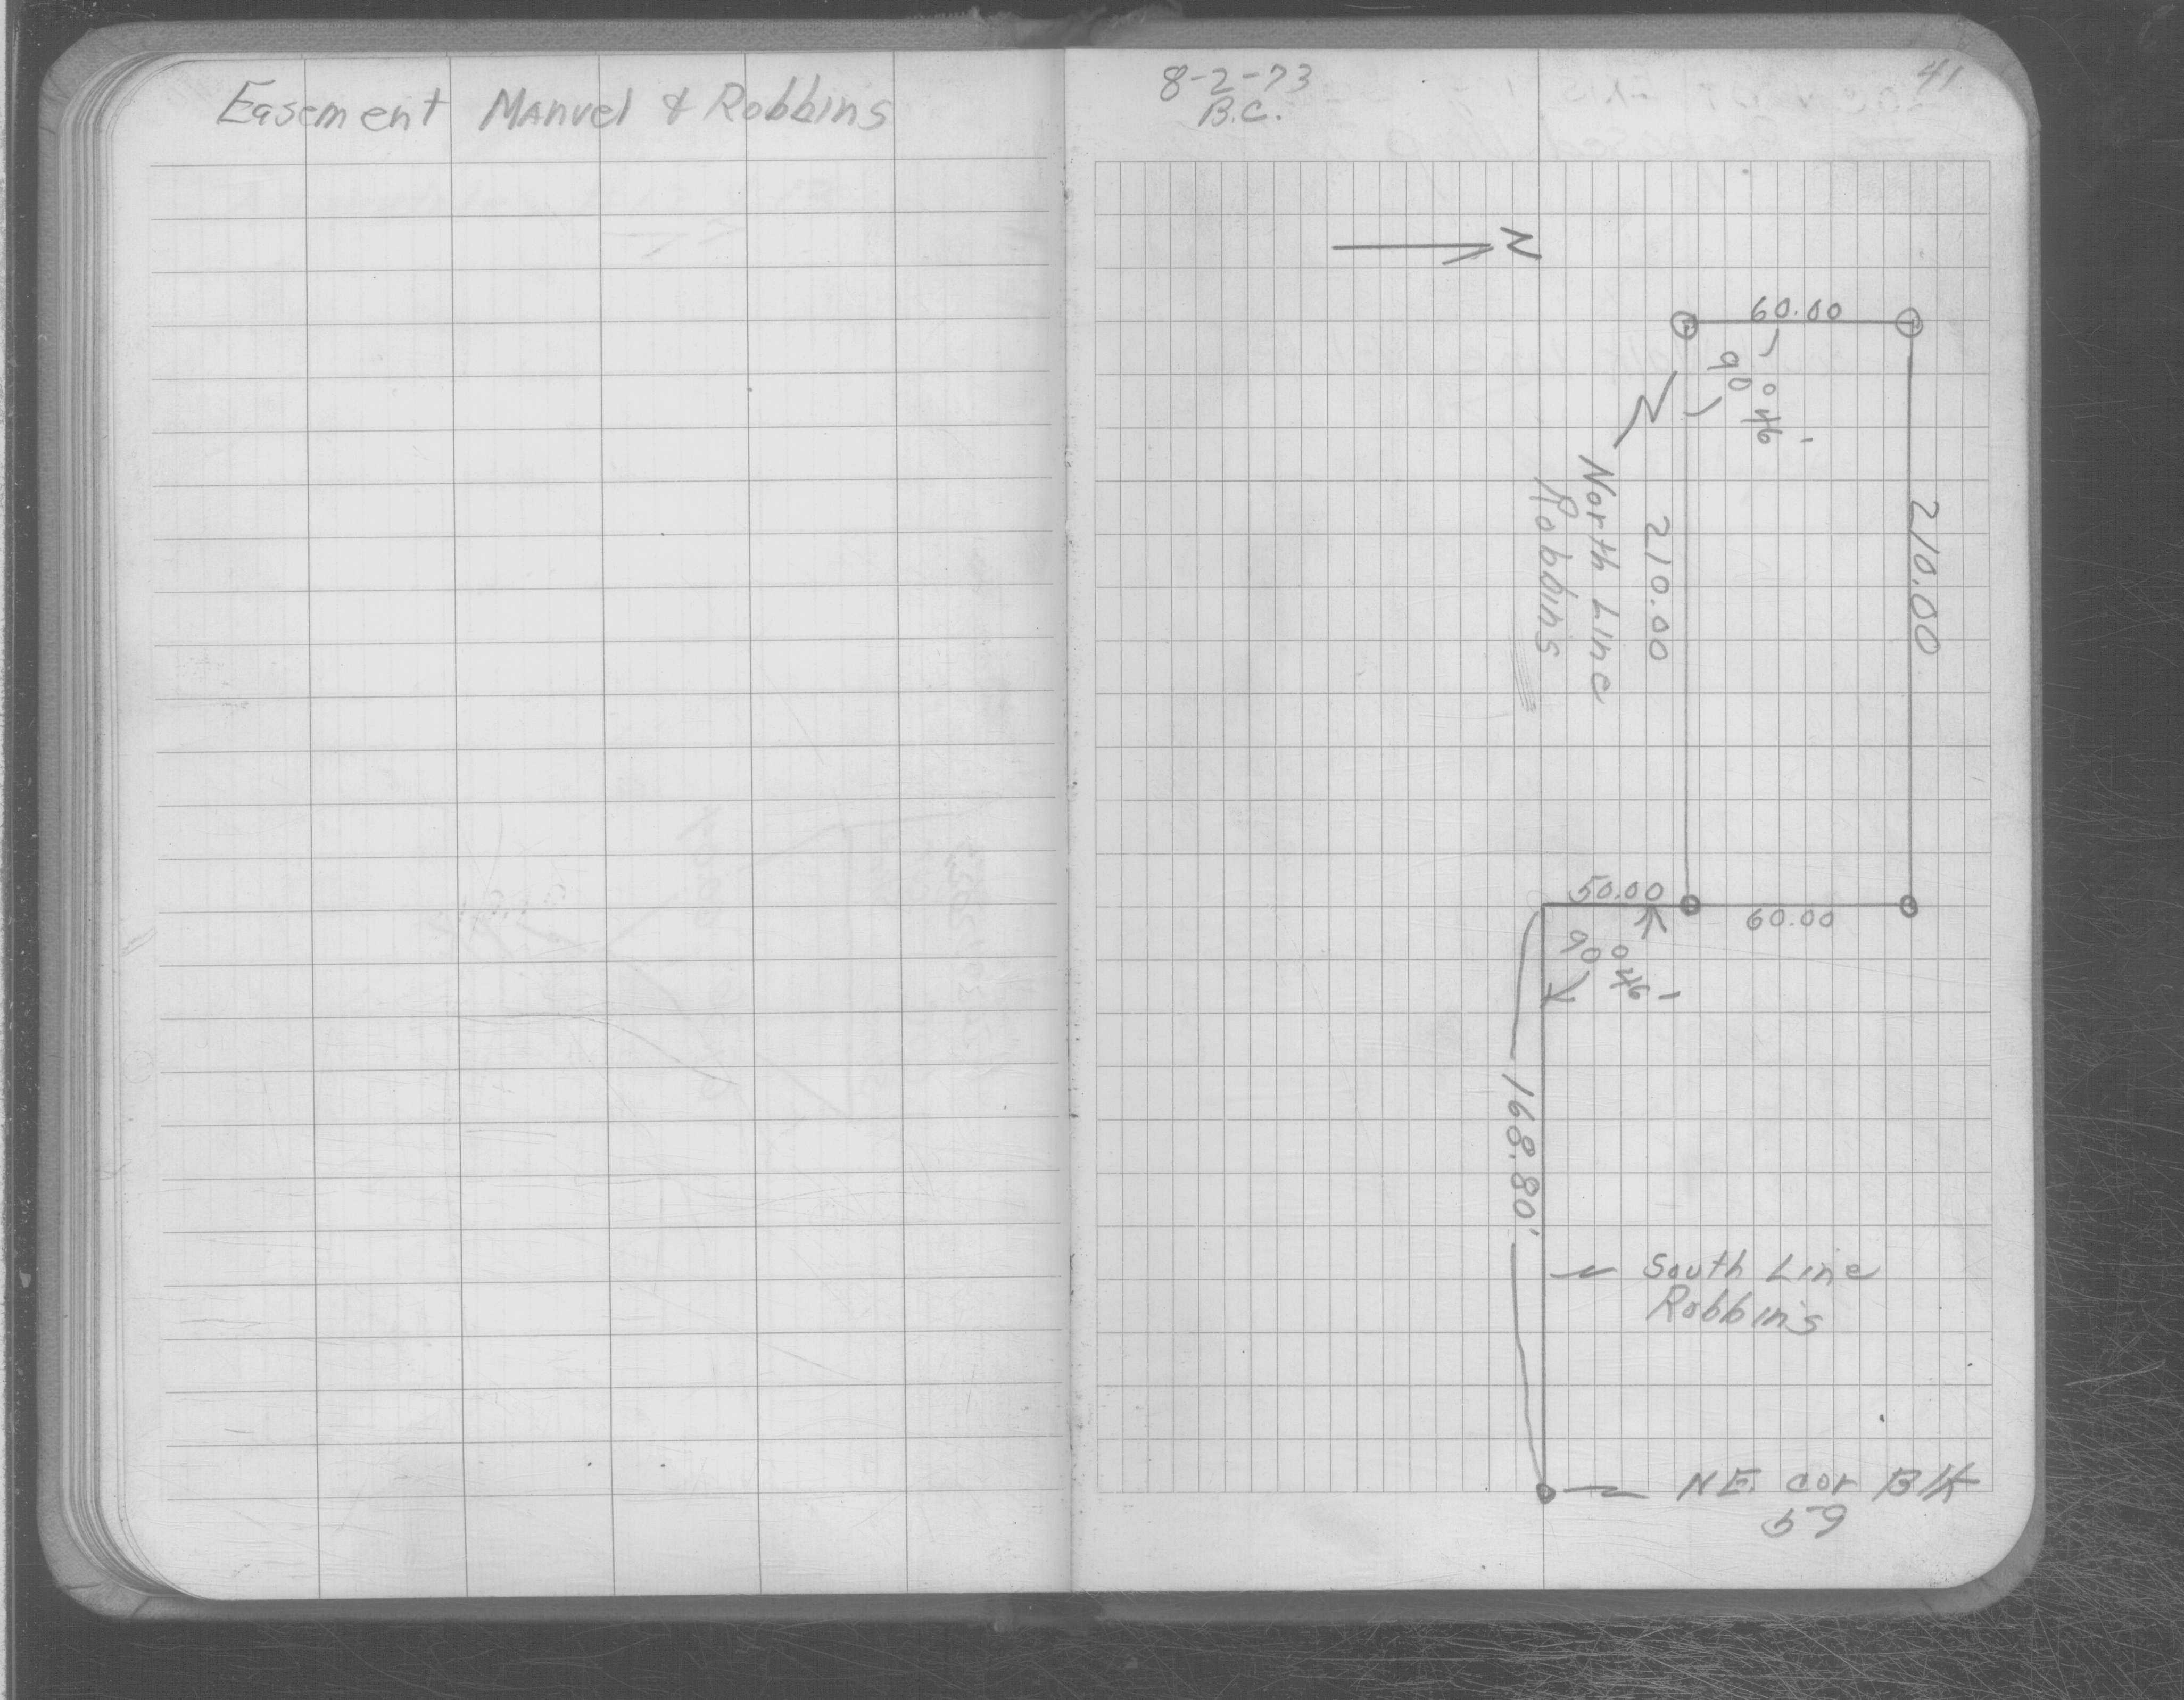 Easement Manvel & Robbins
8-2-73
B.C.
41
N
60.00
90°46'
North Line
Robbins
210.00
210.00
50.00
60.00
90°46'
168.80'
South Line
Robbins
N.E. cor Blk
59